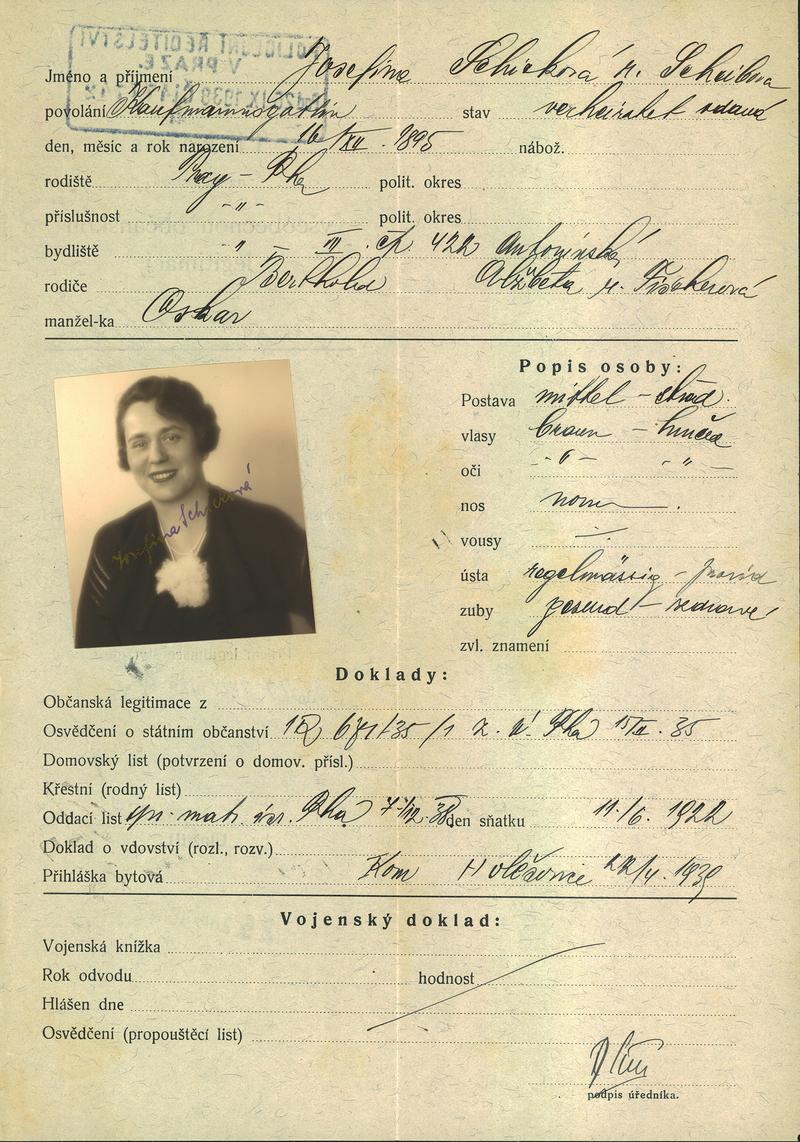 Jméno a příjmení Josefine Schicková r. Scheibova
povolání Kaufmannsgattin stav verheiratet vdaná
den, měsíc a rok narození 16/XII. 1895 nábož.
rodiště Prag – Pha polit. okres
příslušnost – " – polit. okres
bydliště " – čp 422 Antonínská
rodiče Berthold Alžběta r. Fischerová
manžel-ka Oskar
Popis osoby:
Postava mittel – střed.
vlasy braun – hnědá
oči – " – – " –
nos norm.
vousy
ústa regelmässig – pravid
zuby gesund – zdravé
zvl. znamení
Josefina Schicková
Doklady:
Občanská legitimace z
Osvědčení o státním občanství z. ú. Pha 35
Domovský list (potvrzení o domov. přísl.)
Křestní (rodný list)
Oddací list mat. isr. Pha 38 den sňatku 11/6. 1922
Doklad o vdovství (rozl., rozv.)
Přihláška bytová Kom Holešovice 1939
Vojenský doklad:
Vojenská knížka
Rok odvodu hodnost
Hlášen dne
Osvědčení (propouštěcí list)
podpis úředníka.